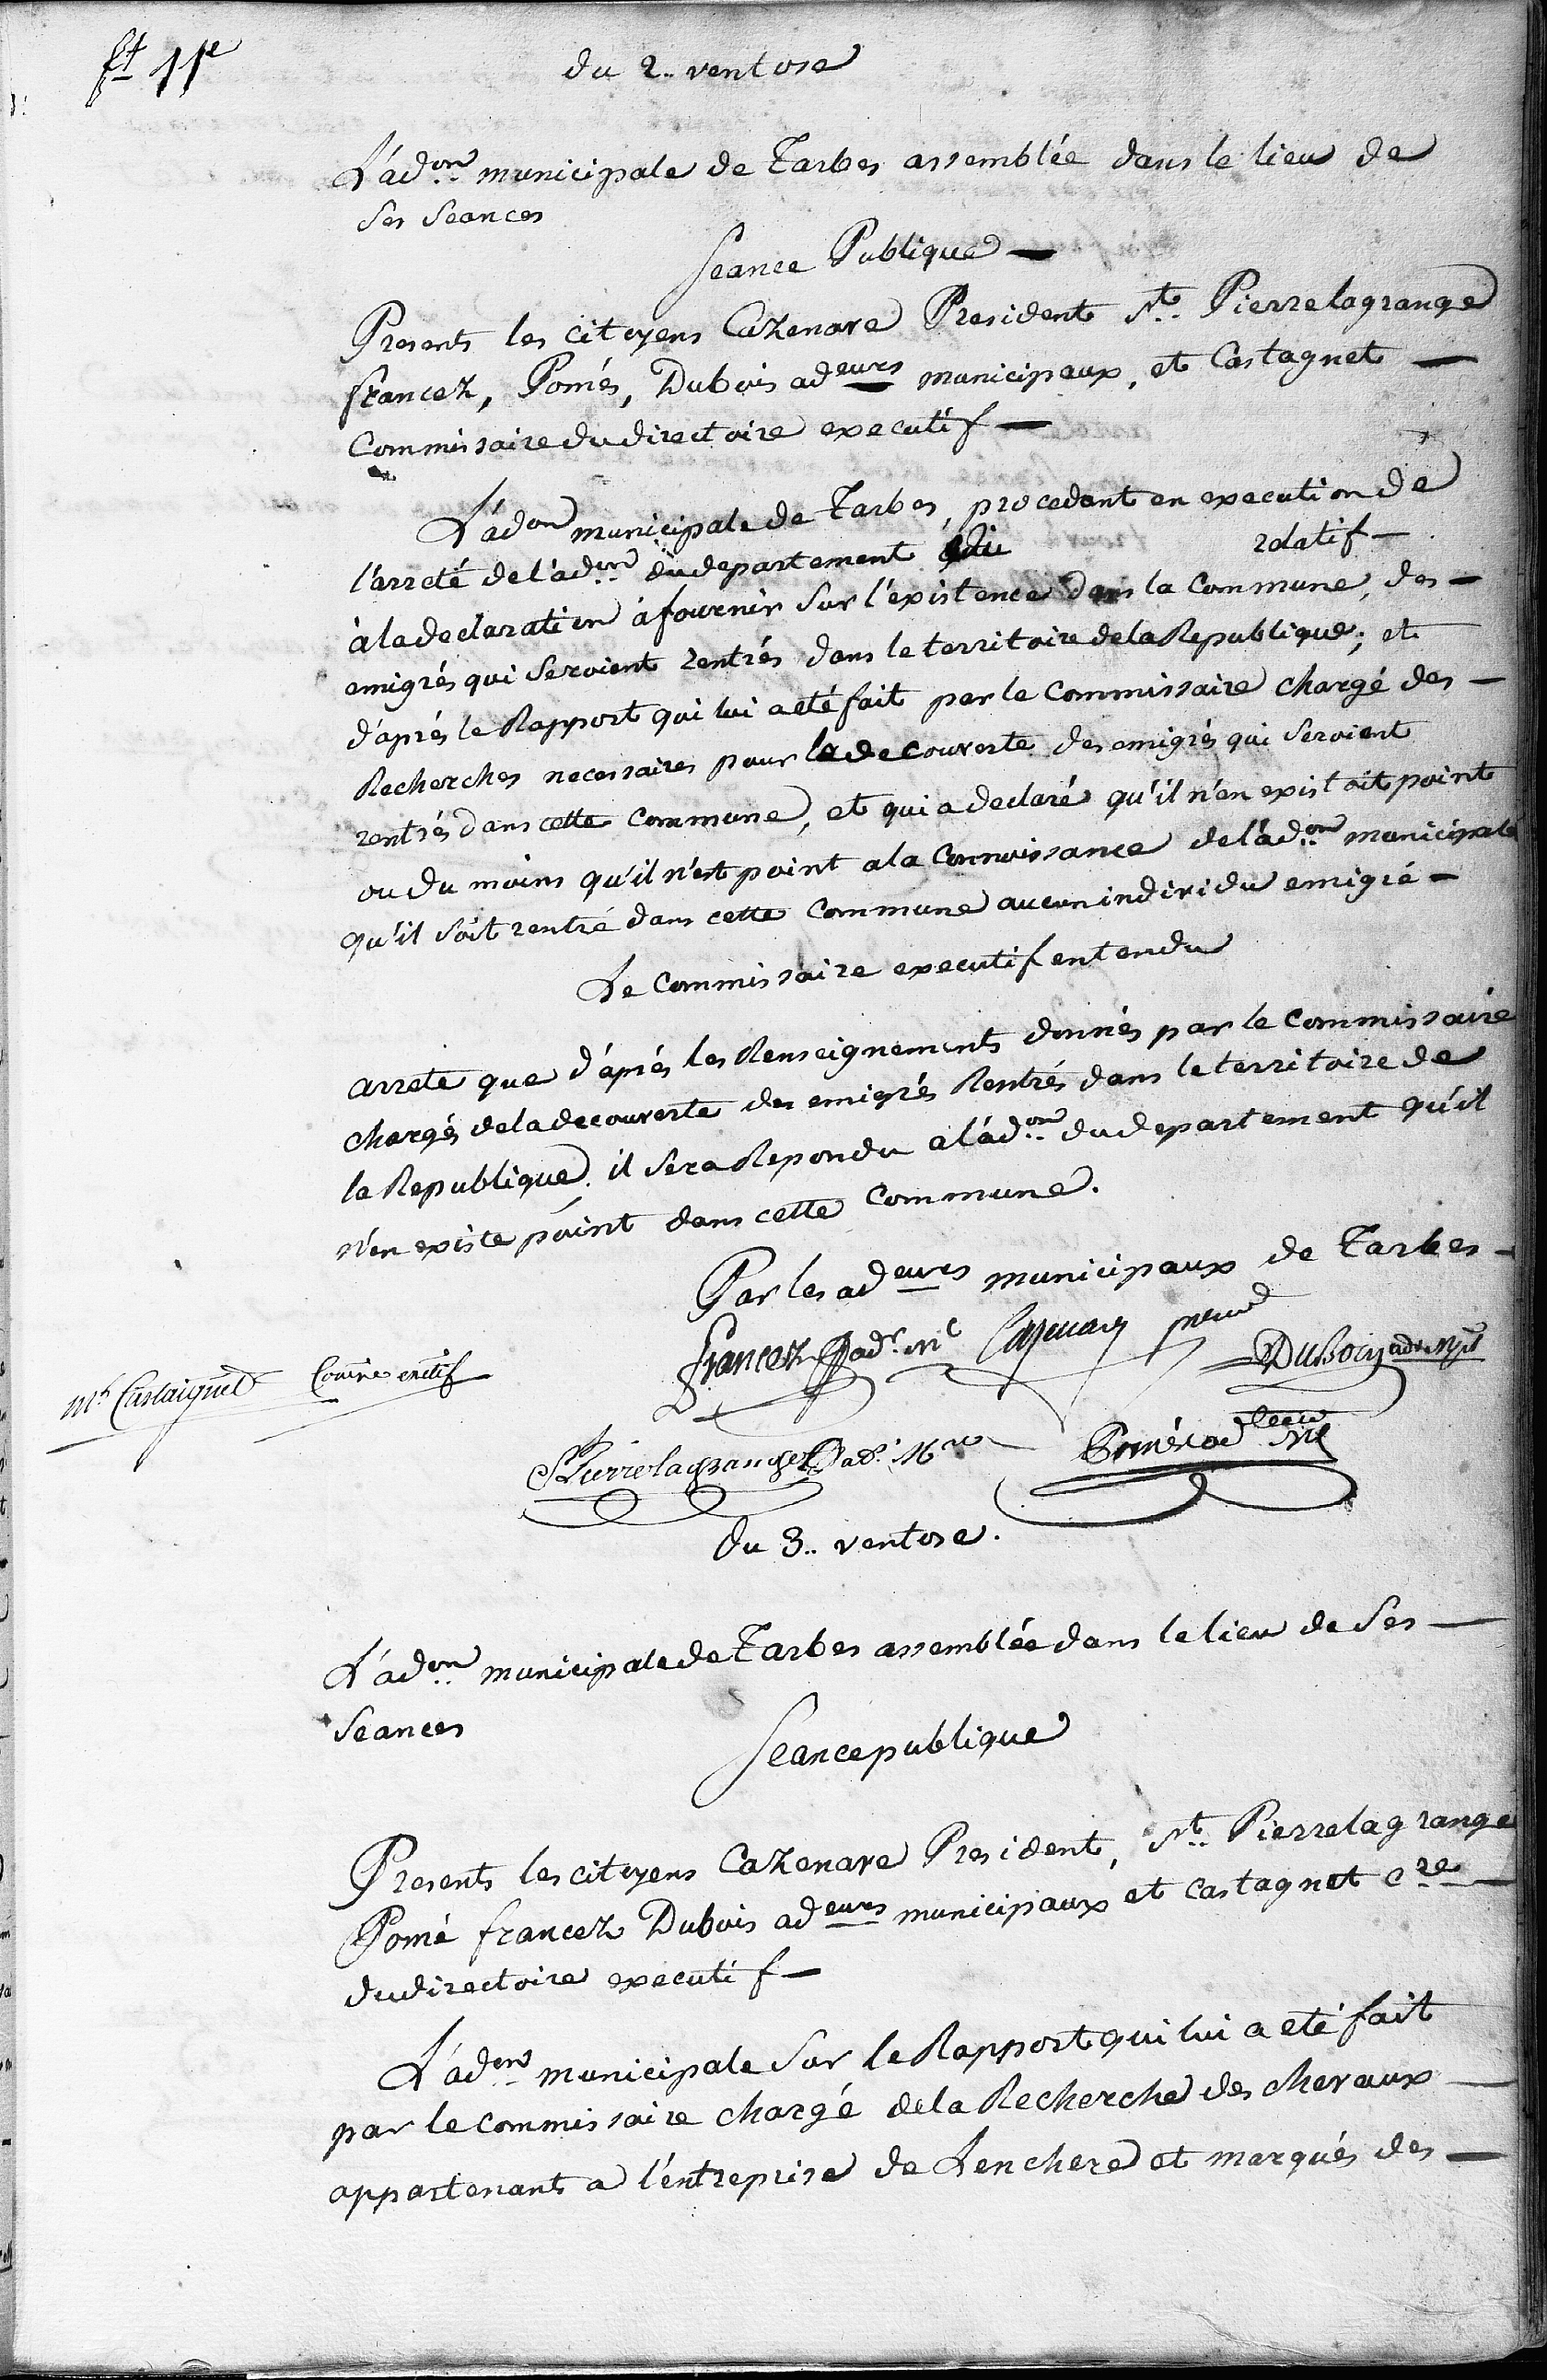 ft 11e
du 2.. ventose
L'adon municipale de Tarbes assemblée dans le lieu de
ses seances
Seance Publique —
Presents les citoyens Cazenave President St. Pierrelagrange
francez, Pomés, Dubois adeurs municipaux, et Castagnet —
Commissaire du directoire executif —
L'adon municipale de Tarbes, procedant en execution de
l'arreté de l'adon du departement du relatif —
à la declaration à fournir sur l'existence dans la Commune, des —
emigrés qui seroient rentrés dans le territoire de la Republique; et
d'aprés le Rapport qui lui a eté fait par le Commissaire chargé des —
Recherches necessaires pour la decouverte des emigrés qui seroient
rentrés dans cette Commune, et qui a declaré qu'il n'en existoit point
ou du moins qu'il n'est point a la Connoissance de l'adon municipale
qu'il soit rentré dans cette Commune aucun individu emigré —
Le Commissaire executif entendu
arrete que d'aprés les Renseignements donnés par le Commissaire
chargés de la decouverte des emigrés Rentrés dans le territoire de
la Republique. il sera Repondu a l'adon du departement qu'il
n'en existe point dans cette Commune.
Par les adeurs municipaux de Tarbes —
francez adr. ml Cazenave
DuBois adr mpl
Castaignet
St Pierrelagrange adr.
Pomés ad
du 3.. ventose.
L'adon municipale de Tarbes assemblée dans le lieu de ses —
seances
Seance publique
Presents les citoyens Cazenave President, St. Pierrelagrange
Pomé francez Dubois adeurs municipaux et castagnet cre —
du directoire executif —
L'adon municipale sur le Rapport qui lui a eté fait
par le commissaire chargé de la Recherche des chevaux —
appartenants a l'entreprise de Lenchere et marqués des —